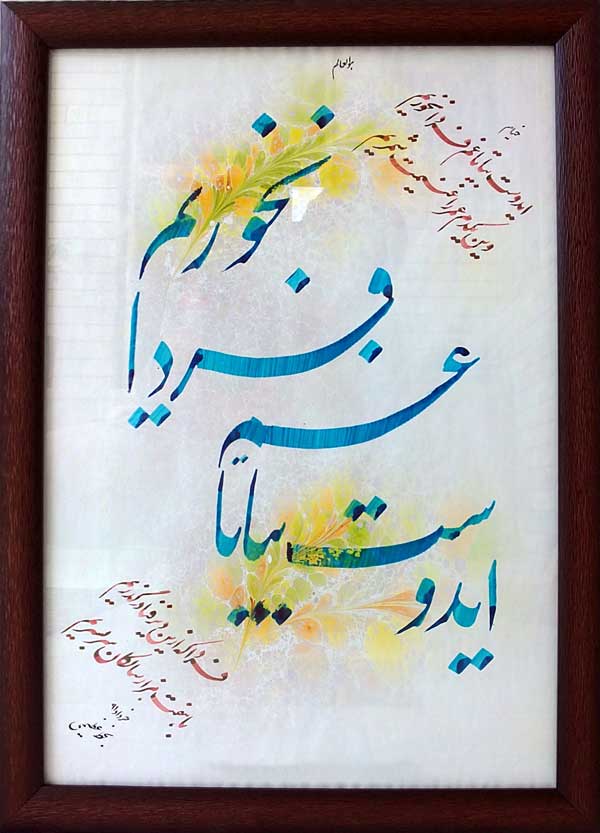 هوالعالم
خیام
ایدوست بیا تا غم فردا نخوریم
وین یکدم عمر را غنیمت شمریم
ایدوست بیا تا
غم
فردا
نخوریم
فردا که ازین دیر فنا درگذریم
با هفت هزار سالگان سر بسریم
خرداد